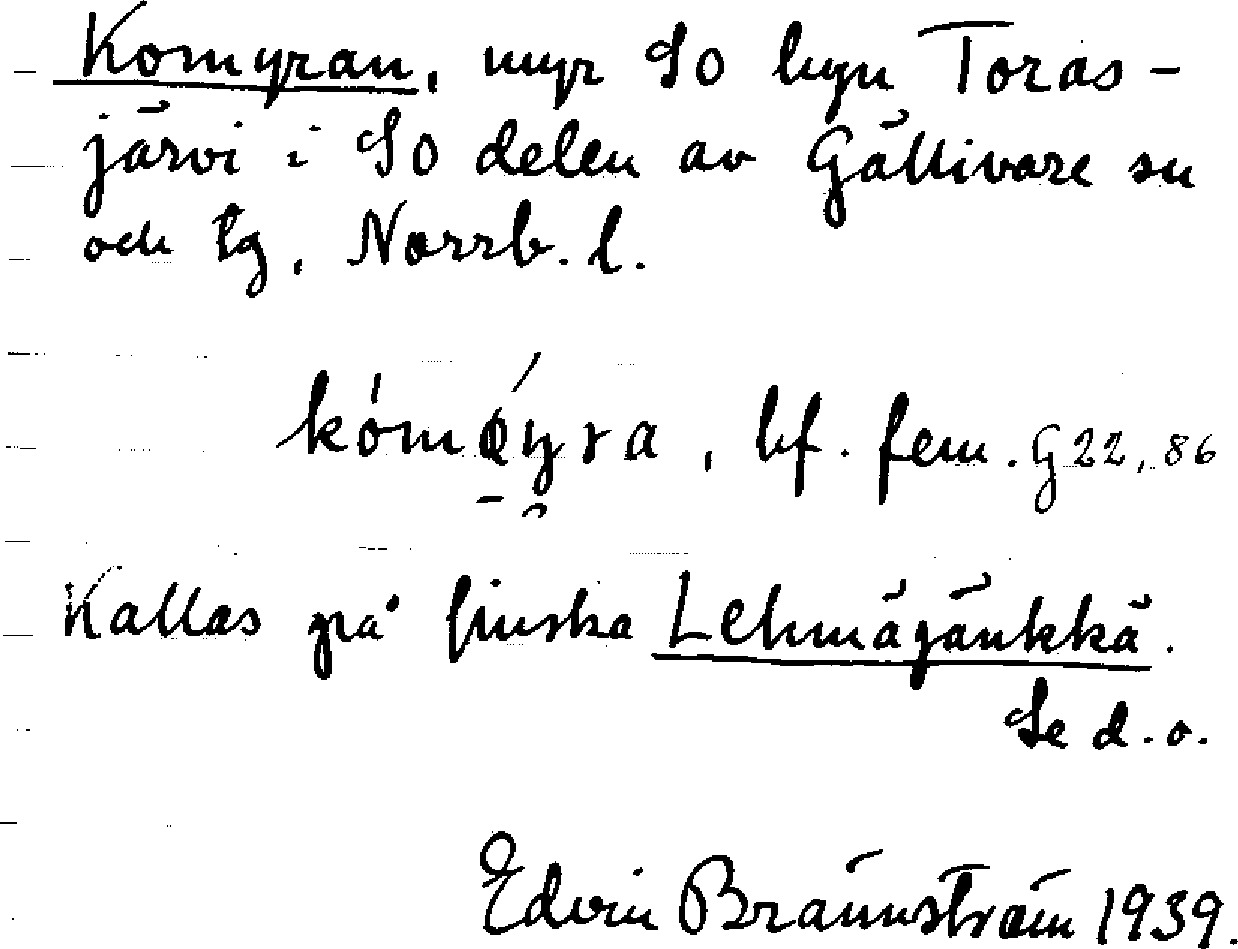 Komyran, myr SO byn Toras-
järvi i SO delen av Gällivare sn
och tg, Norrb. l.
bf. fem. G 22, 86
Kallas på finska Lehmäjänkkä.
Se d.o.
Edvin Brännström 1939.